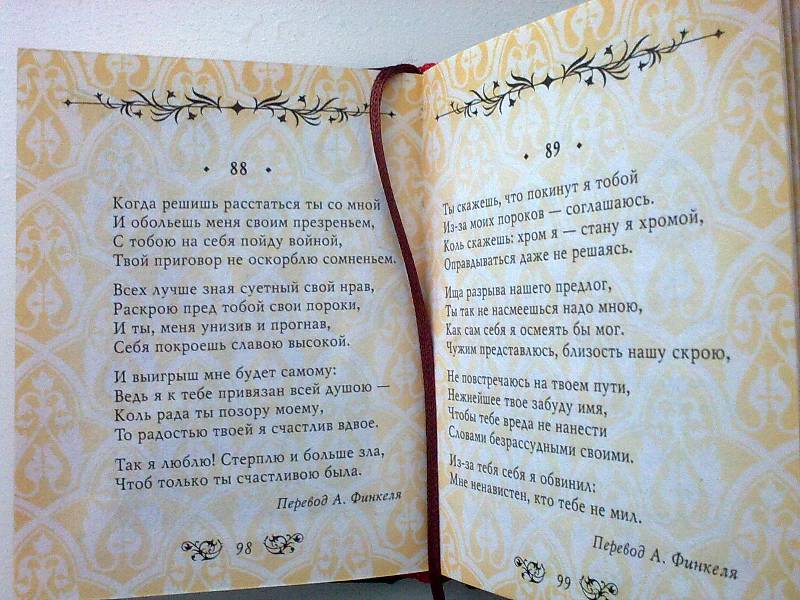 88
Когда решишь расстаться ты со мной
И обольешь меня своим презреньем,
С тобою на себя пойду войной,
Твой приговор не оскорблю сомненьем.
Всех лучше зная суетный свой нрав,
Раскрою пред тобой свои пороки,
И ты, меня унизив и прогнав,
Себя покроешь славою высокой.
И выигрыш мне будет самому:
Ведь я к тебе привязан всей душою —
Коль рада ты позору моему,
То радостью твоей я счастлив вдвое.
Так я люблю! Стерплю и больше зла,
Чтоб только ты счастливою была.
Перевод А. Финкеля
98
89
Ты скажешь, что покинут я тобой
Из-за моих пороков — соглашаюсь.
Коль скажешь: хром я — стану я хромой,
Оправдываться даже не решаясь.
Ища разрыва нашего предлог,
Ты так не насмеешься надо мною,
Как сам себя я осмеять бы мог.
Чужим представлюсь, близость нашу скрою,
Не повстречаюсь на твоем пути,
Нежнейшее твое забуду имя,
Чтобы тебе вреда не нанести
Словами безрассудными своими.
Из-за тебя себя я обвинил:
Мне ненавистен, кто тебе не мил.
Перевод А. Финкеля
99